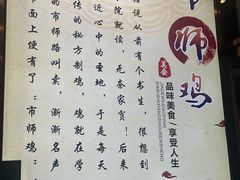 市师鸡
美食
品味美食/享受人生
话说从前有个书生，很想到
院就读，无奈家贫！后来
近心中的圣地，于是每天
传的秘方制鸡，鸡就在学
的市师路叫卖，渐渐名声
面上便有了：市师鸡：